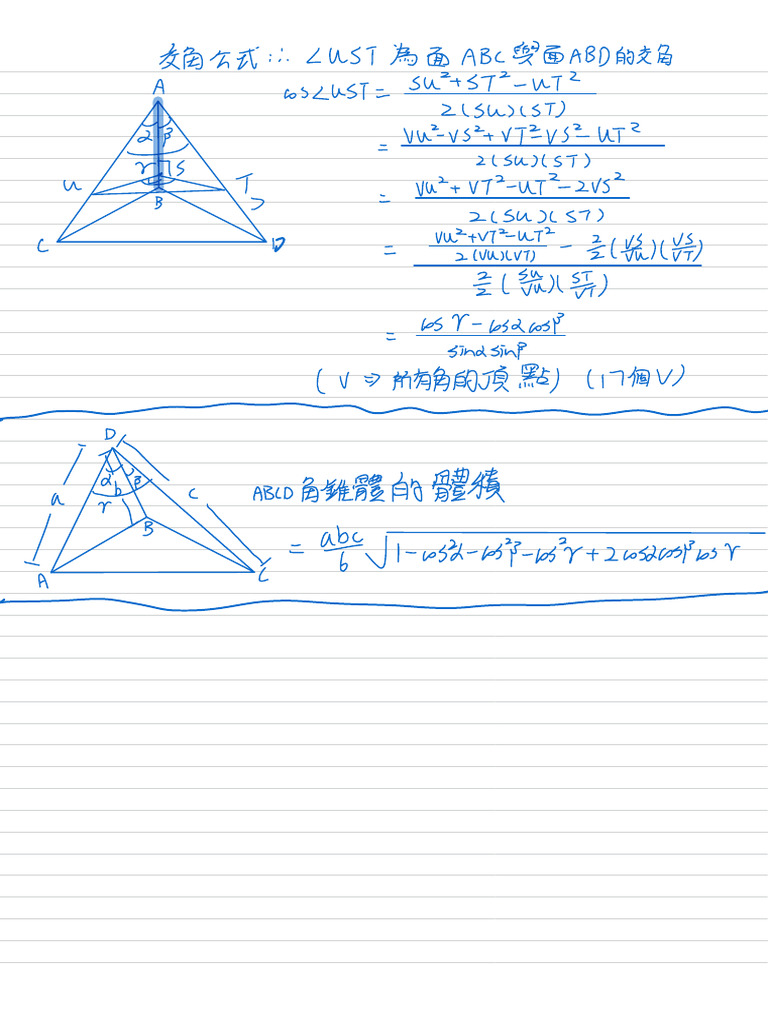 交角公式∴∠UST 為面 ABC與面ABD的交角
A
cos∠UST = (SU²+ST²-UT²) / (2(SU)(ST))
= (VU²-VS²+VT²-VS²-UT²) / (2(SU)(ST))
= (VU²+VT²-UT²-2VS²) / (2(SU)(ST))
= ((VU²+VT²-UT²) / (2(VU)(VT)) - 2/2 (VS/VU)(VS/VT)) / (2/2 (SU/VU)(ST/VT))
= (cosγ-cosαcosβ) / (sinαsinβ)
(V ⇒ 所有角的頂點) (17個V)
α β
γ S
U T
B
C D
D
α β
a b c
γ
B
A C
ABCD角錐體的體積
= abc/6 √(1-cos²α-cos²β-cos²γ+2cosαcosβcosγ)